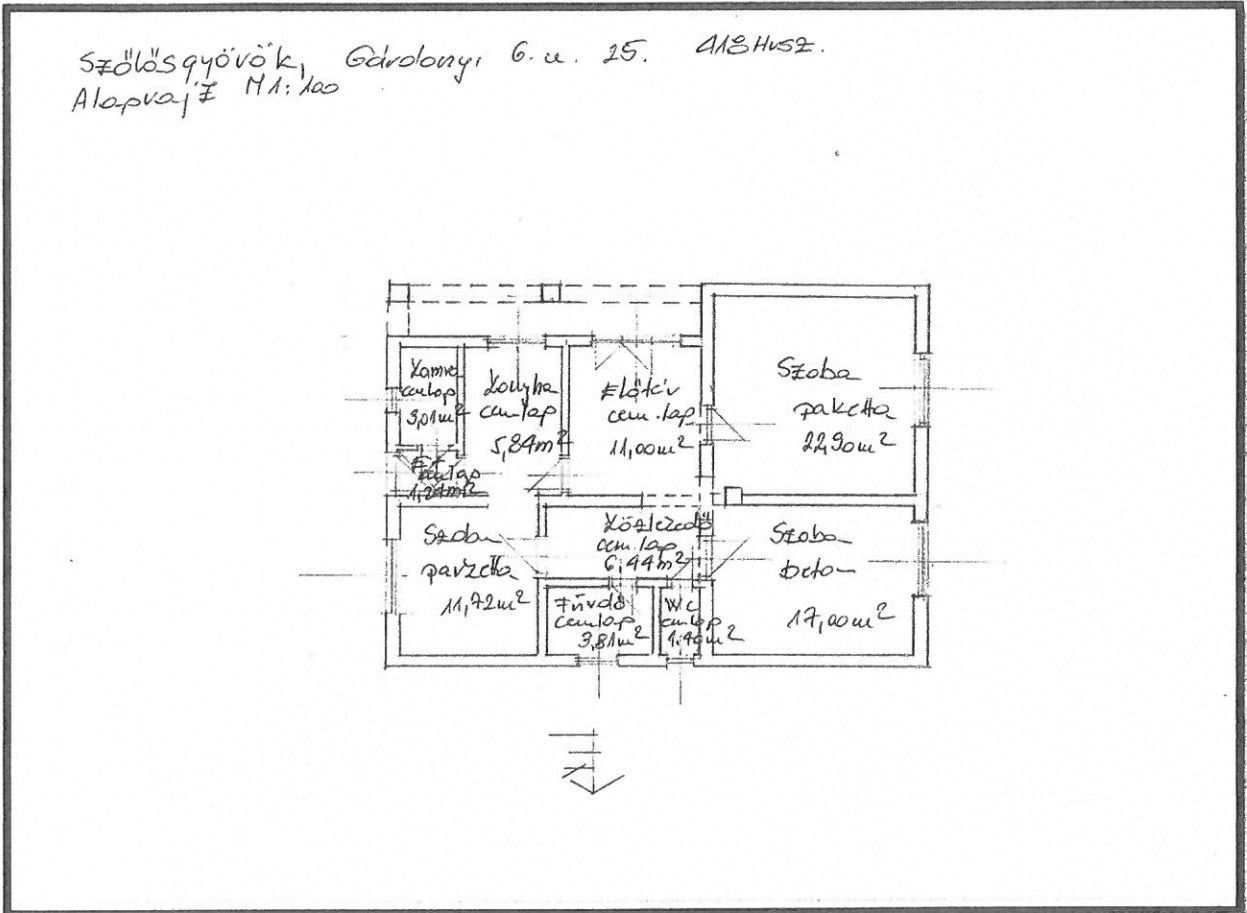 Szőlősgyörök, Gárdonyi G. u. 25. 418 Hrsz.
Alaprajz M1:100
Kamra
cem.lap
3,01m²
Konyha
cem.lap
5,84m²
Előtér
cem.lap
11,00m²
Szoba
paketta
22,90m²
cem.lap
Szoba
parketta
11,72m²
Közlekedő
cem.lap
6,44m²
Szoba
beton
17,00m²
Fürdő
cem.lap
3,81m²
Wc
cem.lap